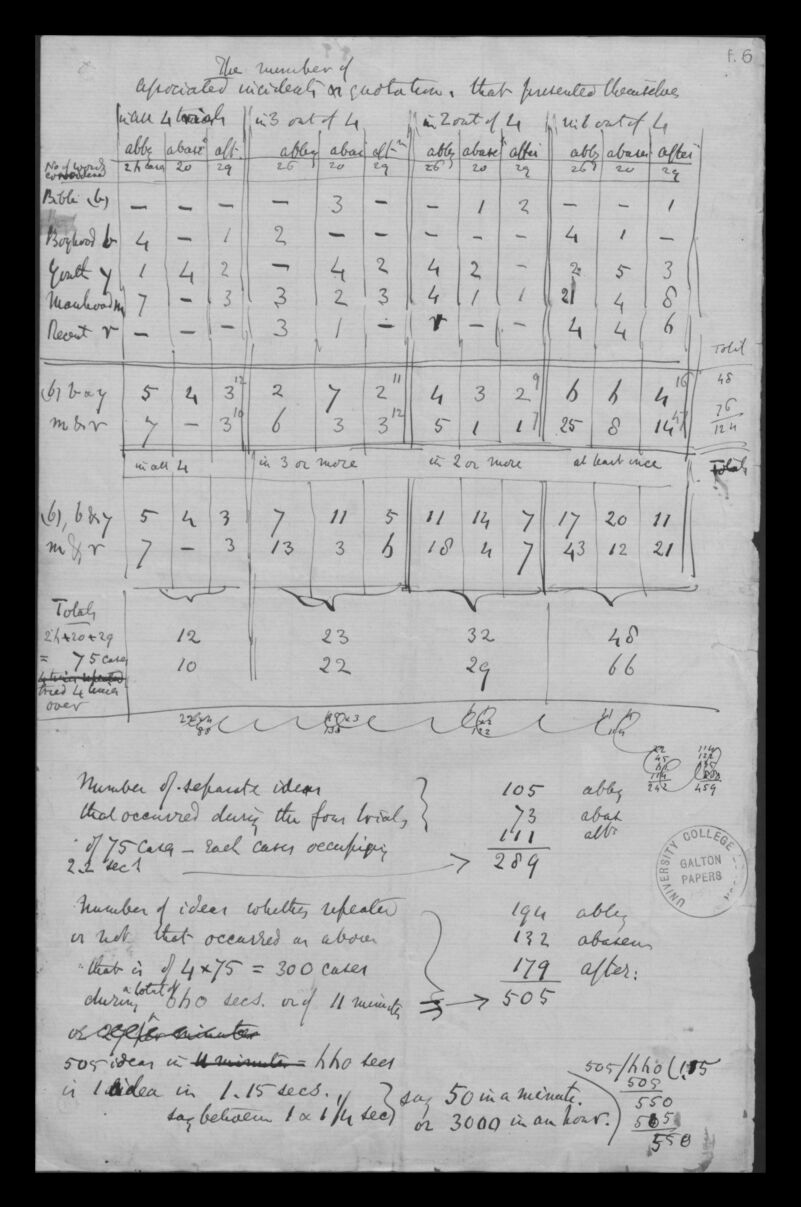 f. 6
The number of
associated incidents or quotations that presented themselves
in all 4 trials in 3 out of 4 in 2 out of 4 in 1 out of 4
abbey abase aft. abbey abase aft abbey abase after abbey abase after
No of words 26 20 29 26 20 29 26 20 29 26 20 29
Bible (b) — — — — 3 — — 1 2 — — 1
Boyhood b 4 — 1 2 — — — — — 4 1 —
Youth y 1 4 2 — 4 2 4 2 — 2 5 3
Manhood m 7 — 3 3 2 3 4 1 1 21 4 8
Recent r — — — 3 1 — — — 4 4 6
Total
(b) b & y 5 4 3 12 2 7 2 11 4 3 2 9 6 6 4 16 48
m & r 7 — 3 10 6 3 3 12 5 1 1 7 25 8 14 47 76
124
in all 4 in 3 or more in 2 or more at least once Totals
(b), b & y 5 4 3 7 11 5 11 14 7 17 20 11
m & r 7 — 3 13 3 6 18 4 7 43 12 21
Totals
26+20+29 12 23 32 48
= 75 cases 10 22 29 66
4 times repeated
tried 4 times
over
Number of separate ideas 105 abbey
that occurred during the four trials 73 abas
of 75 cases — Each cases occupying 111 aftr
2.2 secs 289
UNIVERSITY COLLEGE
GALTON
PAPERS
Number of ideas whether repeated 194 abbey
or not that occurred as above 132 abasem
that is of 4 × 75 = 300 cases 179 after:
during a total of 660 secs. or of 11 minutes 505
or
505 ideas in 11 minutes = 660 secs
is 1 idea in 1.15 secs. say 50 in a minute.
say between 1 & 1 1/4 sec or 3000 in an hour.
505/660(1.15
505
550
505
550